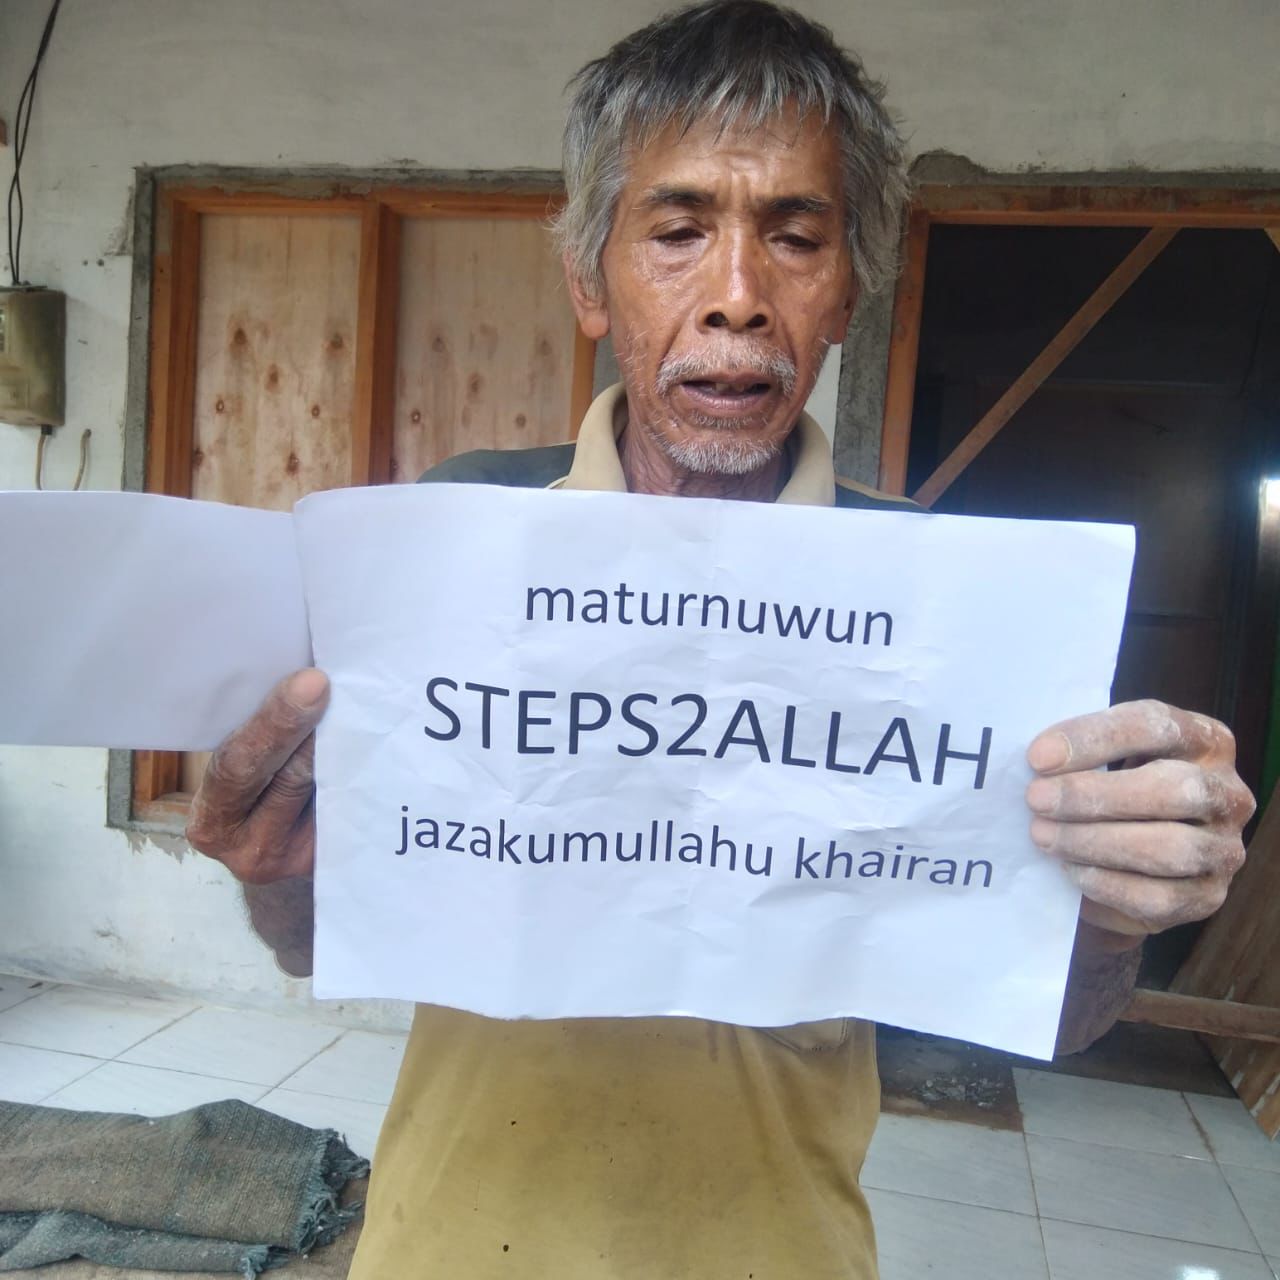 maturnuwun
STEPS2ALLAH
jazakumullahu khairan